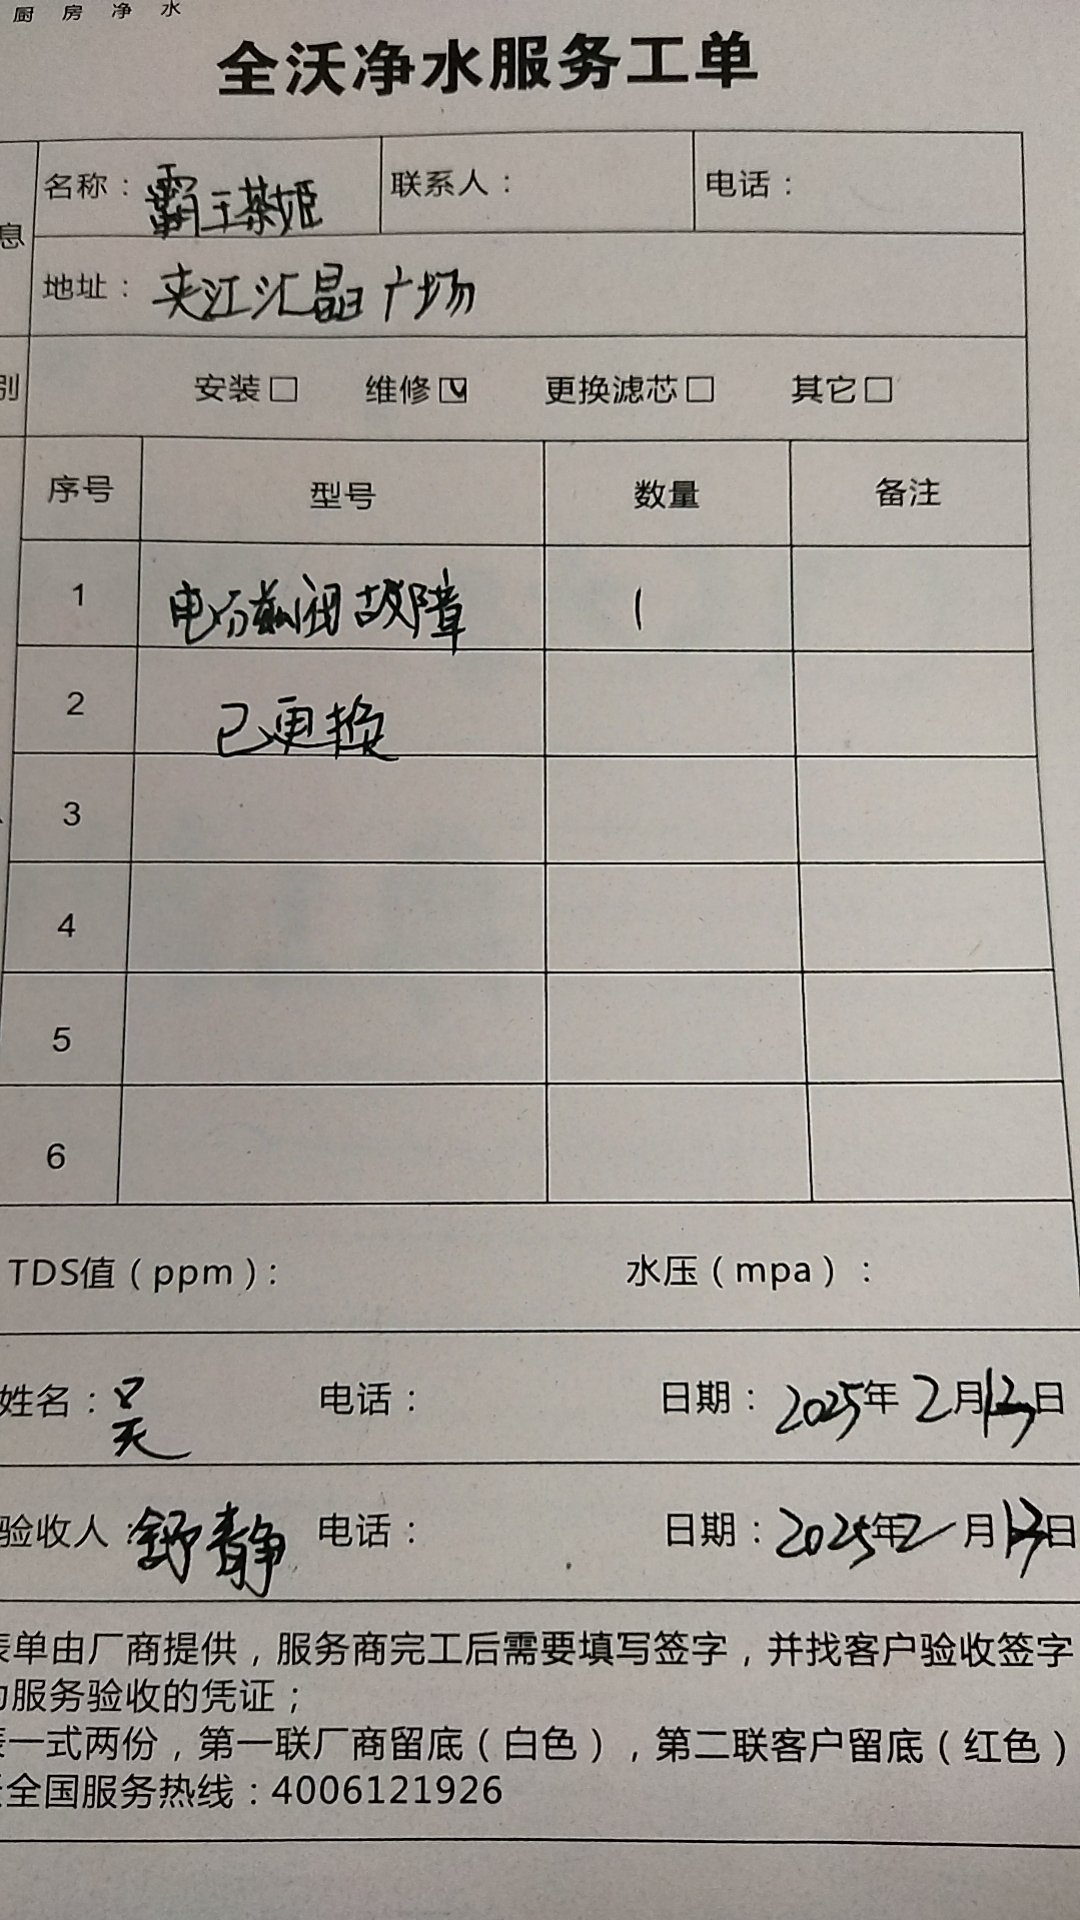 厨房净水
全沃净水服务工单
息
名称：霸王茶姬 联系人： 电话：
地址：夹江汇晶广场
别
安装□ 维修☑ 更换滤芯□ 其它□
序号 型号 数量 备注
1 电磁阀故障 1
2 已更换
3
4
5
6
TDS值（ppm）： 水压（mpa）：
姓名：吴 电话： 日期：2025年2月13日
验收人：舒静 电话： 日期：2025年2月13日
表单由厂商提供，服务商完工后需要填写签字，并找客户验收签字
为服务验收的凭证；
表一式两份，第一联厂商留底（白色），第二联客户留底（红色）
全国服务热线：4006121926